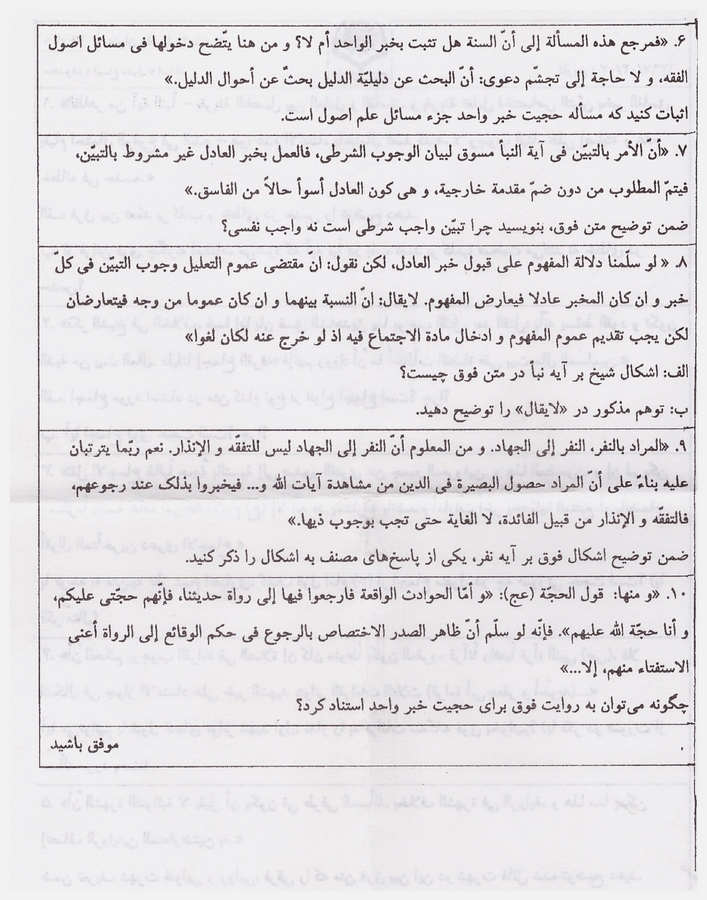 ۶. «فمرجع هذه المسألة إلى أنّ السنة هل تثبت بخبر الواحد أم لا؟ و من هنا يتّضح دخولها فى مسائل اصول
الفقه، و لا حاجة إلى تجشّم دعوى: أنّ البحث عن دليليّة الدليل بحثٌ عن أحوال الدليل.»
اثبات کنید که مسأله حجیت خبر واحد جزء مسائل علم اصول است.
۷. «أنّ الأمر بالتبيّن فى آية النبأ مسوق لبيان الوجوب الشرطى، فالعمل بخبر العادل غير مشروط بالتبيّن،
فيتمّ المطلوب من دون ضمّ مقدمة خارجية، و هى كون العادل أسوأ حالاً من الفاسق.»
ضمن توضیح متن فوق، بنویسید چرا تبیّن واجب شرطی است نه واجب نفسی؟
۸. « لو سلّمنا دلالة المفهوم على قبول خبر العادل، لكن نقول: انّ مقتضى عموم التعليل وجوب التبيّن فى كل
خبر و ان كان المخبر عادلا فيعارض المفهوم. لايقال: انّ النسبة بينهما و ان كان عموما من وجه فيتعارضان
لكن يجب تقديم عموم المفهوم و ادخال مادة الاجتماع فيه اذ لو خرج عنه لكان لغوا»
الف: اشکال شیخ بر آیه نبأ در متن فوق چیست؟
ب: توهم مذکور در «لایقال» را توضیح دهید.
۹. «المراد بالنفر، النفر إلى الجهاد. و من المعلوم أنّ النفر إلى الجهاد ليس للتفقّه و الإنذار. نعم ربّما يترتبان
عليه بناءً على أنّ المراد حصول البصيرة فى الدين من مشاهدة آيات الله و... فيخبروا بذلك عند رجوعهم،
فالتفقّه و الإنذار من قبيل الفائدة، لا الغاية حتى تجب بوجوب ذيها.»
ضمن توضیح اشکال فوق بر آیه نفر، یکی از پاسخ‌های مصنف به اشکال را ذکر کنید.
۱۰. «و منها: قول الحجّة (عج): «و أمّا الحوادث الواقعة فارجعوا فيها إلى رواة حديثنا، فإنهم حجّتى عليكم،
و أنا حجّة الله عليهم». فإنّه لو سلّم أنّ ظاهر الصدر الاختصاص بالرجوع فى حكم الوقائع إلى الرواة أعنى
الاستفتاء منهم، إلا...»
چگونه می‌توان به روایت فوق برای حجیت خبر واحد استناد کرد؟
موفق باشید